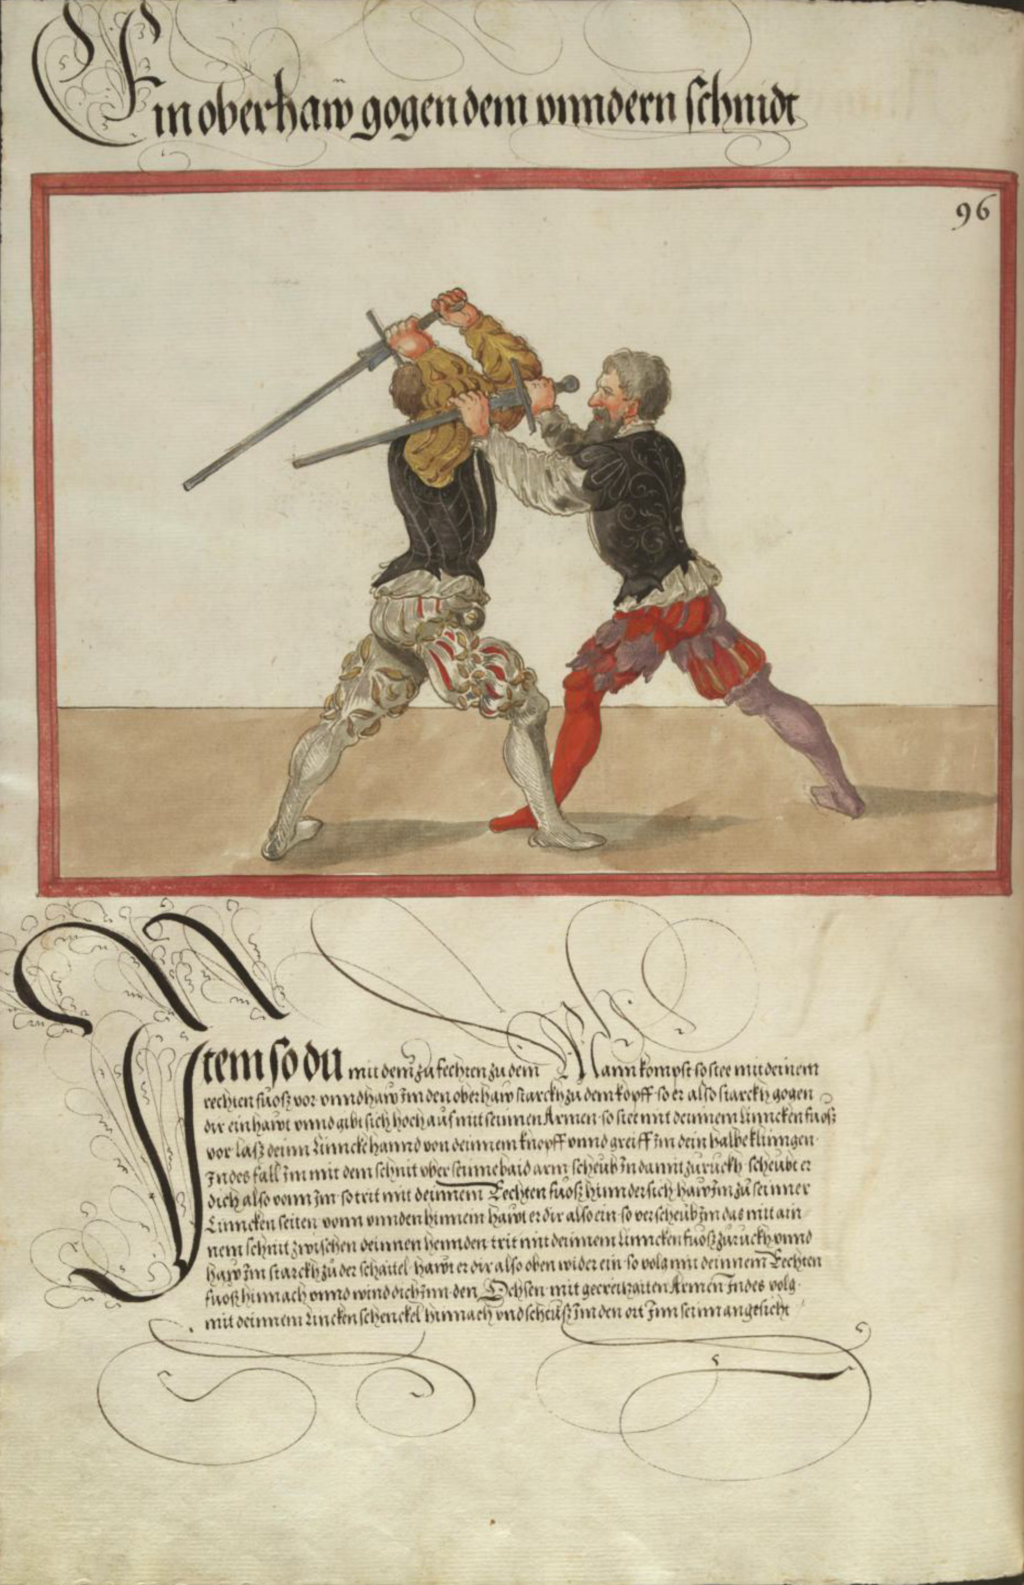 Ein oberhaw gogen dem vnndern schnidt
96
Item so du mit dem zufechten zu dem Mann kompst so stee mit deinem
rechten fuosz vor vnnd haw im den oberhaw starckh zu dem kopff so er also starckh gogen
dir ein hawt vnnd gibt sich hoch auf mit seinnen Armen so stet mit deinnem Linncken fuosz
vor lasz deinn Linncke hannd von deinnem knopff vnnd greiff im dein halbe klinngen
Indes fall im mit dem schnit vber seinne baid arm scheub in damit zuruckh scheubt er
dich also vonn im so trit mit deinnem Rechten fuosz hinndersich haw im zu seinner
Linncken seiten vonn vnnden hinnein hawt er dir also ein so verscheub im das mit ain
nem schnit zwischen deinnen hennden trit mit deinnem linncken fuosz zuruckh vnnd
haw im starckh zu der schaitel hawt er dir also oben wider ein so volg mit deinnem Rechten
fuosz hinnach vnnd wind dich inn den Ochsen mit gecreitzaiten Armen Indes volg
mit deinnem Lincken schenckel hinnach vnd scheusz im den ort inn sein angesicht